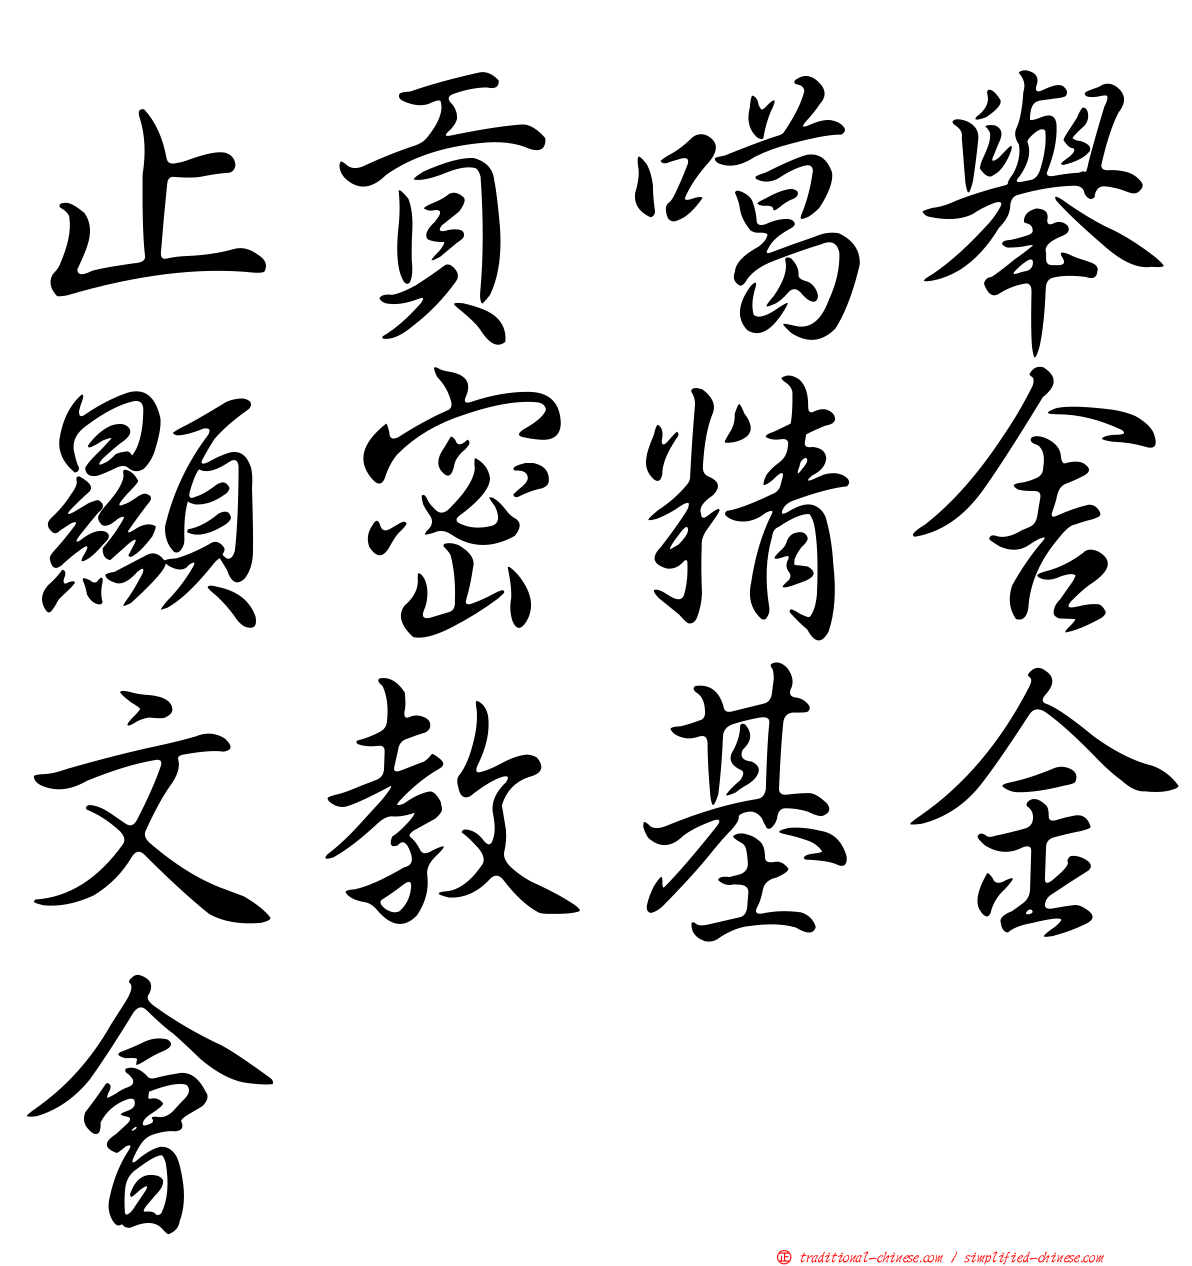 止貢噶舉
顯密精舍
文教基金
會
正 traditional-chinese.com / simplified-chinese.com